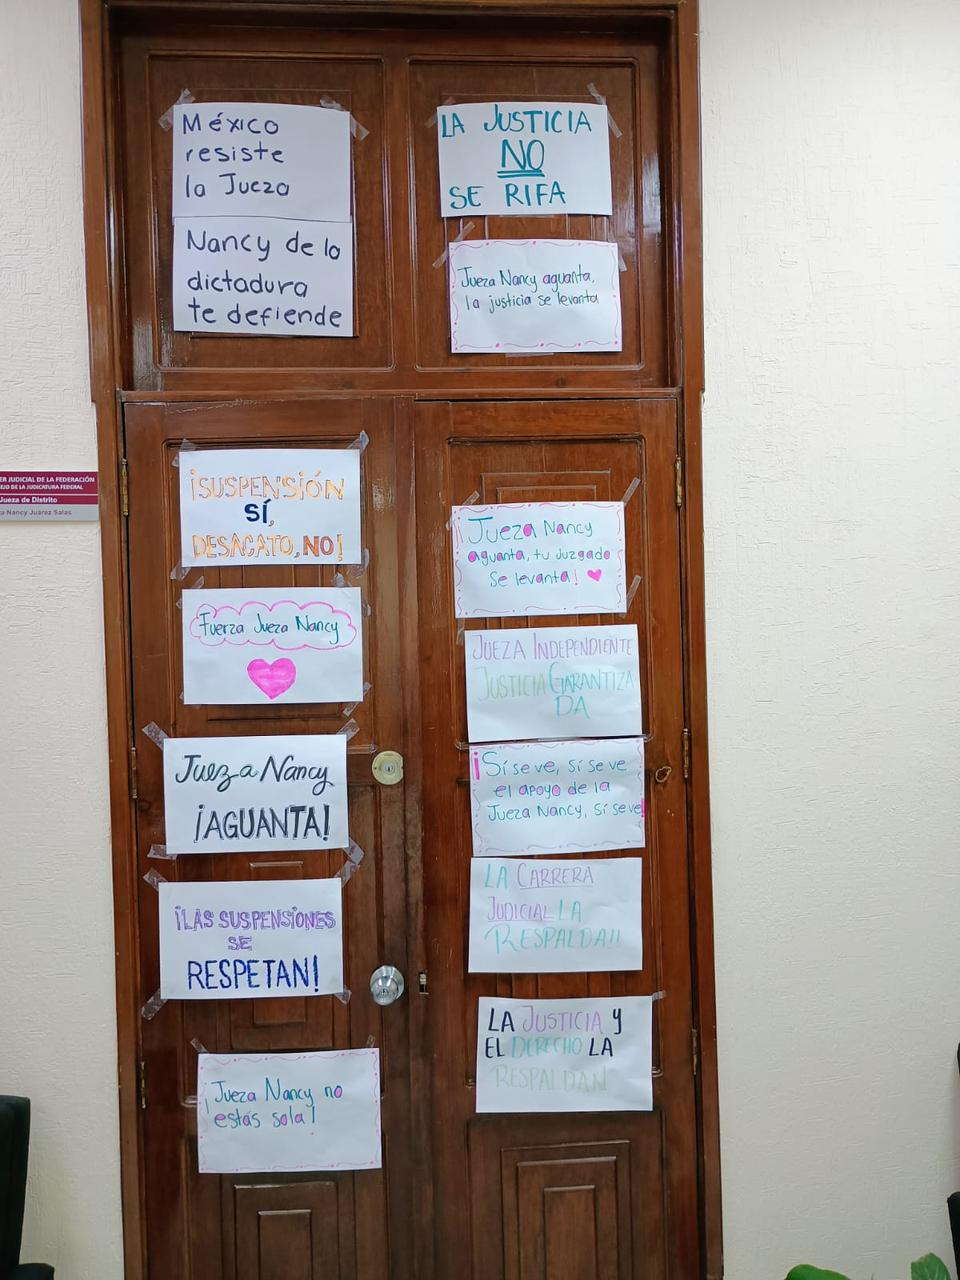 México
resiste
la Jueza
Nancy de la
dictadura
te defiende
LA JUSTICIA
NO
SE RIFA
Jueza Nancy aguanta,
la justicia se levanta
¡SUSPENSIÓN
SÍ,
DESACATO, NO!
Fuerza Jueza Nancy
Jueza Nancy
¡AGUANTA!
¡LAS SUSPENSIONES
SE
RESPETAN!
¡Jueza Nancy no
estás sola!
¡Jueza Nancy
aguanta, tu Juzgado
se levanta!
JUEZA INDEPENDIENTE
JUSTICIA GARANTIZA
DA
¡Sí se ve, sí se ve
el apoyo de la
Jueza Nancy, sí se ve!
LA CARRERA
JUDICIAL LA
RESPALDA!!
LA JUSTICIA Y
EL DERECHO LA
RESPALDAN
ER JUDICIAL DE LA FEDERACIÓN
EJO DE LA JUDICATURA FEDERAL
Jueza de Distrito
Nancy Juárez Salas